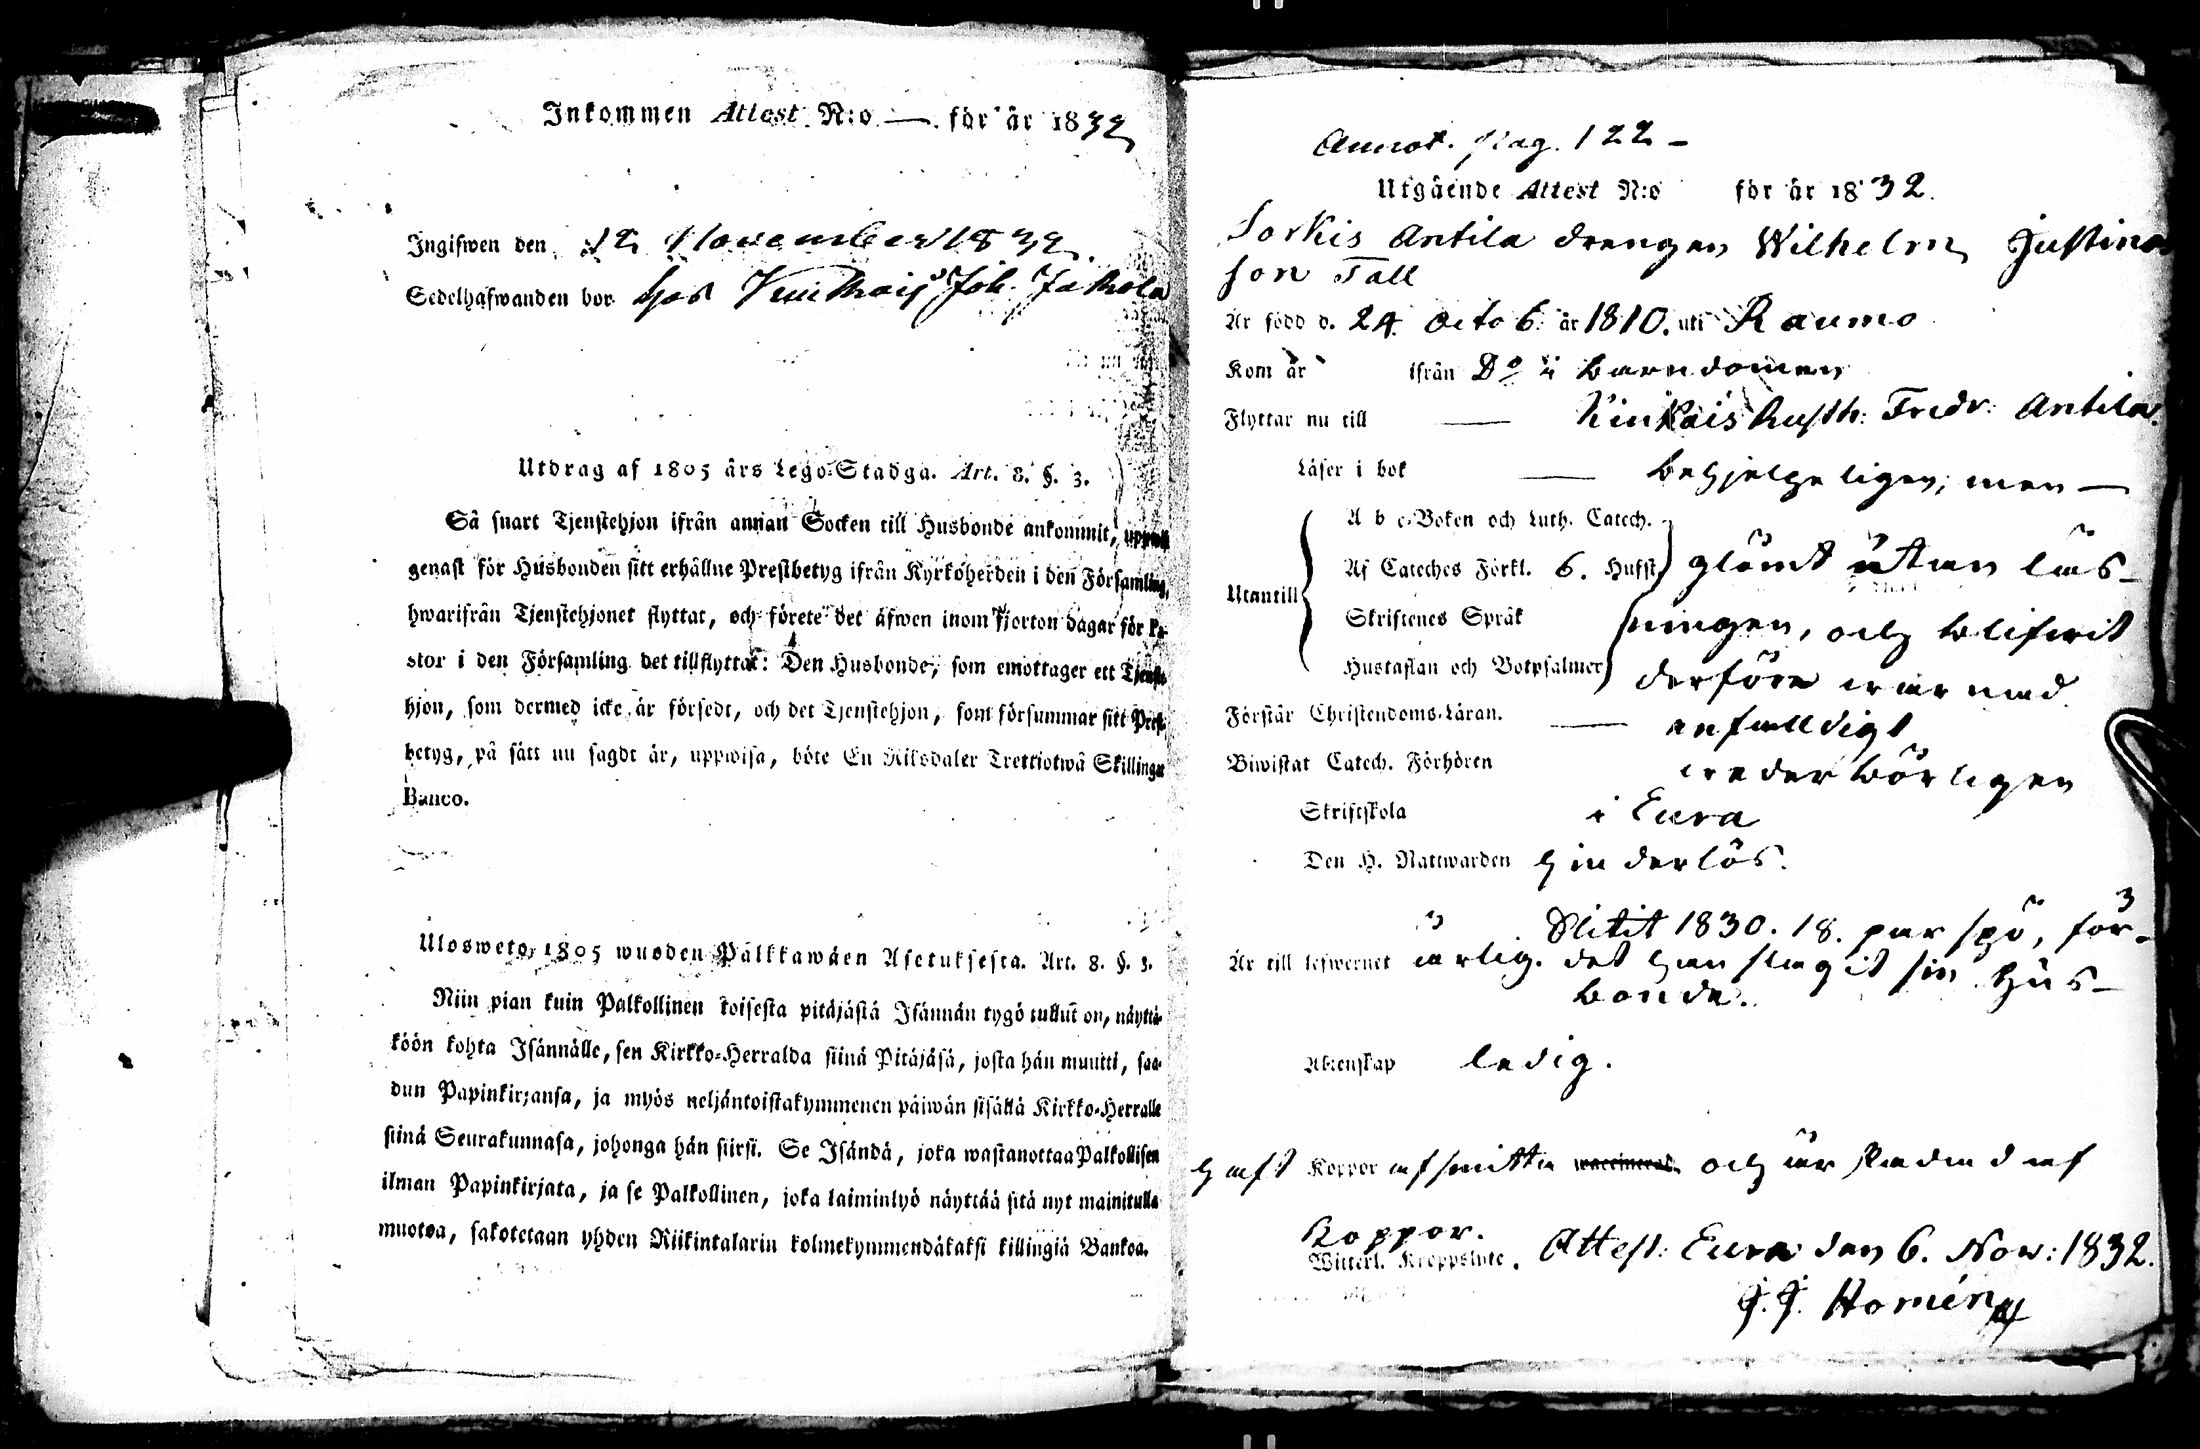 Inkommen Attest N:o — för år 1832
Ingifwen den 12 November 1832.
Sedelhafwanden bor hos Joh. Jakola
Utdrag af 1805 års Lego-Stadga. Art. 8. §. 3.
Så snart Tjenstehjon ifrån annan Socken till Husbonde ankommit,
genast för Husbonden sitt erhållne Prestbetyg ifrån Kyrkoherden i den Församling,
hwarifrån Tjenstehjonet flyttat, och förete det äfwen inom fjorton dagar för Pa-
stor i den Församling det tillflyttat: Den Husbonde, som emottager ett Tjenste-
hjon, som dermed icke är försedt, och det Tjenstehjon, som försummar sitt Prest-
betyg, på sätt nu sagdt är, uppwisa, böte En Riksdaler Trettiotwå Skillingar
Banco.
Ulosweto, 1805 wuoden Palkkawäen Asetuksesta. Art. 8. §. 3.
Niin pian kuin Palkollinen toisesta pitäjästä Isännän tygö tullut on, näyttä-
köön kohta Isännälle, sen Kirkko-Herralda siinä Pitäjäsä, josta hän muutti, saa-
dun Papinkirjansa, ja myös neljäntoistakymmenen päiwän sisällä Kirkko-Herralle
siinä Seurakunnasa, johonga hän siirsi. Se Isändä, joka wastanottaa Palkollisen
ilman Papinkirjata, ja se Palkollinen, joka laiminlyö näyttää sitä nyt mainitulla
muotoa, sakotetaan yhden Riikintalarin kolmekymmendäkaksi killingiä Bankoa.
Annot. pag. 122 –
Utgående Attest N:o för år 1832.
Sorkis Antila drengen Wilhelm Justina
son Tall
Är född d. 24 Octob. år 1810. uti Raumo
Kom år ifrån Do i barndomen
Flyttar nu till — Kiukais Rusth: Fredr: Antila.
Läser i bok — behjelpeligen; men —
A b c-Boken och Luth. Catech.
Af Cateches Förkl. 6. Hufst. glömt utan läs-
Utantill
Skriftenes Språk ningen, och blifwit
Hustaflan och Botpsalmer derföre warnad
Förstår Christendoms-Läran. — enfalldigt
Biwistat Catech. Förhören wederbörligen
Skriftskola i Eura
Den H. Nattwarden hinderlös.
Slitit 1830. 18. par spö, för-
Är till lefwernet ärlig. det han slagit sin Hus-
bonde.
Äktenskap ledig.
haft Koppor af smitta waccinerad. och är skadad af
Koppor.
Witterl. Kroppslyte. Attest: Eura den 6. Nov: 1832.
J. J. Homén